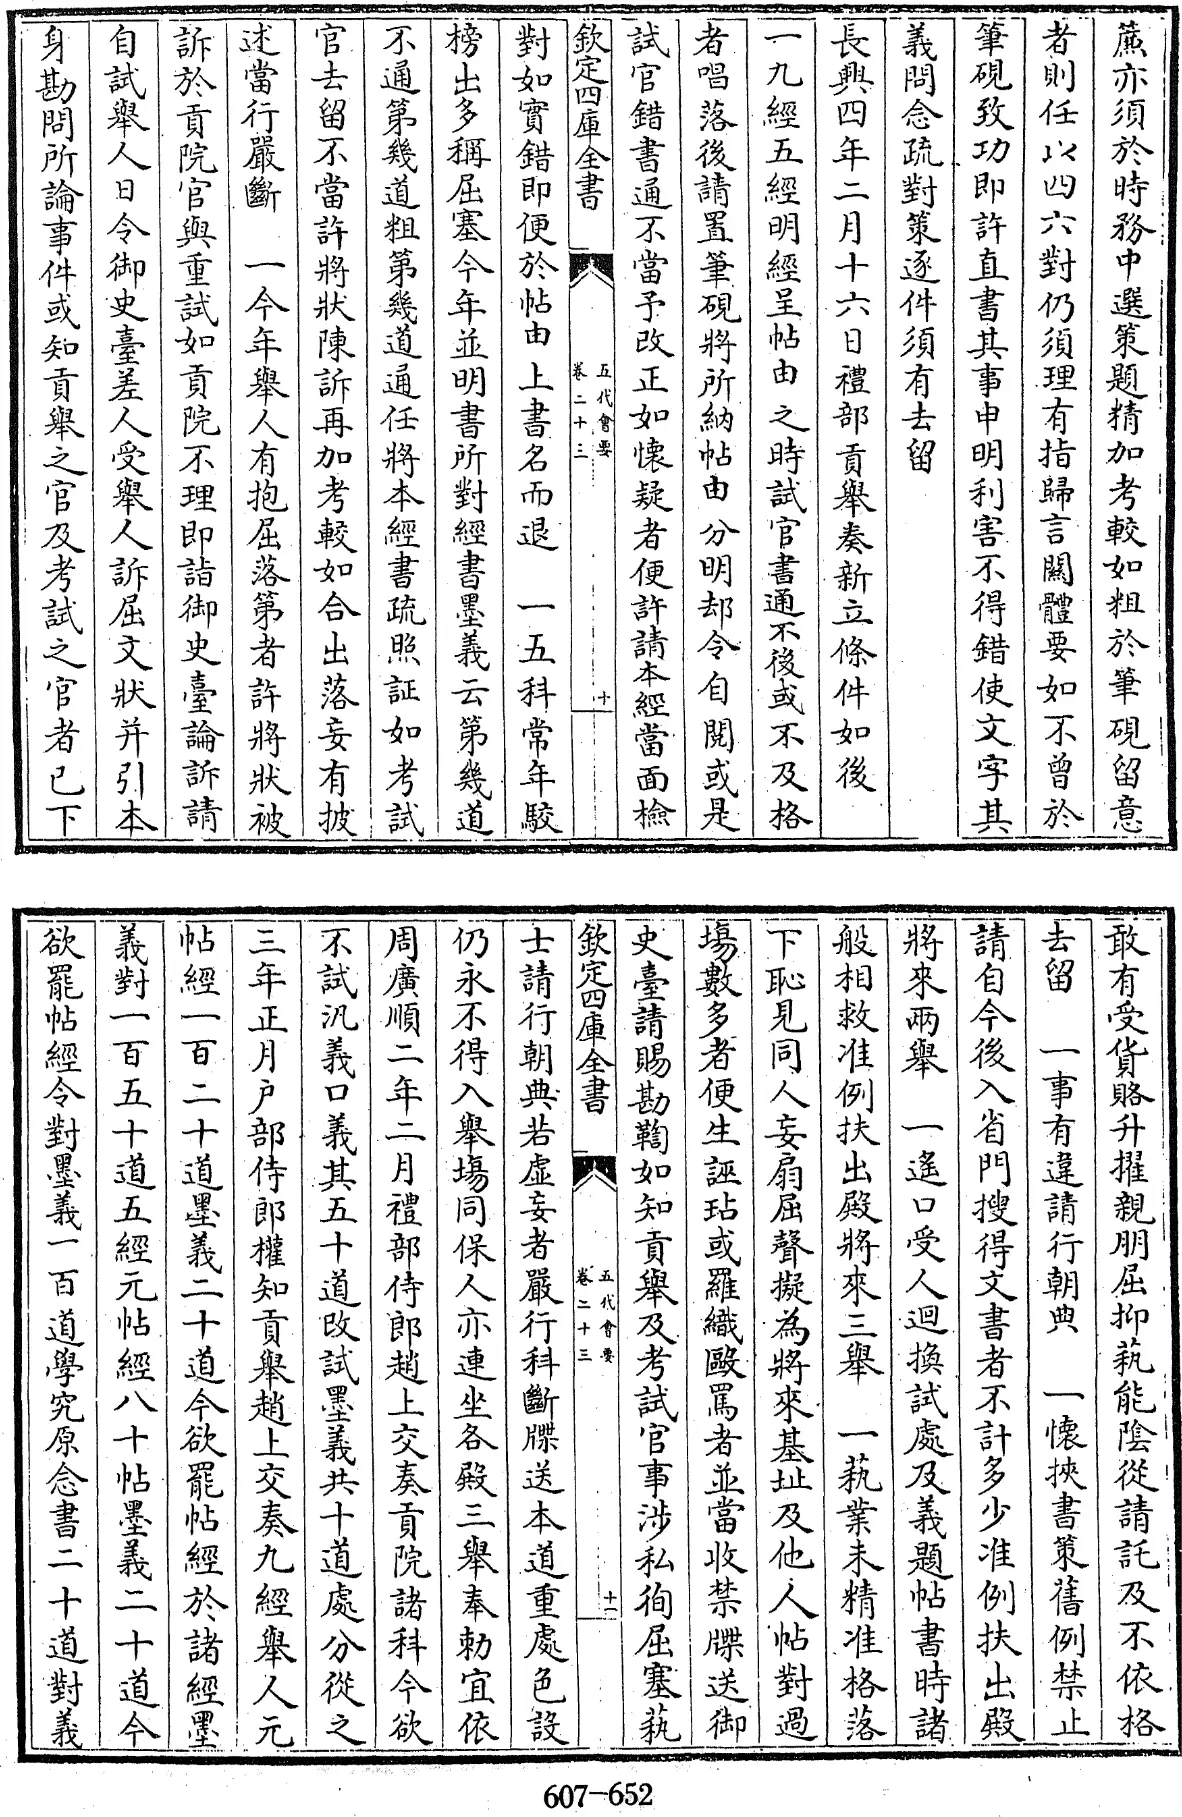 薦亦須於時務中選策題精加考較如粗於筆硯留意
者則任以四六對仍須理有指歸言關體要如不曾於
筆硯致功即許直書其事申明利害不得錯使文字其
義問念疏對策逐件須有去留
長興四年二月十六日禮部貢舉奏新立條件如後
一九經五經明經呈帖由之時試官書通不後或不及格
者唱落後請置筆硯將所納帖由分明却令自閱或是
試官錯書通不當予改正如懷疑者便許請本經當面檢
欽定四庫全書
五代會要
卷二十三
十
對如實錯即便於帖由上書名而退 一五科常年駮
榜出多稱屈塞今年並明書所對經書墨義云第幾道
不通第幾道粗第幾道通任將本經書疏照証如考試
官去留不當許將狀陳訴再加考較如合出落妄有披
述當行嚴斷 一今年舉人有抱屈落第者許將狀被
訴於貢院官與重試如貢院不理即詣御史臺論訴請
自試舉人日令御史臺差人受舉人訴屈文狀并引本
身勘問所論事件或知貢舉之官及考試之官者已下
敢有受貨賂升擢親朋屈抑藝能陰從請託及不依格
去留 一事有違請行朝典 一懷挾書策舊例禁止
請自今後入省門搜得文書者不計多少准例扶出殿
將來兩舉 一遙口受人迴換試處及義題帖書時諸
般相救准例扶出殿將來三舉 一藝業未精准格落
下恥見同人妄扇屈聲擬為將來基址及他人帖對過
場數多者便生誣玷或羅織毆罵者並當收禁牒送御
史臺請賜勘鞫如知貢舉及考試官事涉私徇屈塞藝
欽定四庫全書
五代會要
卷二十三
十一
士請行朝典若虛妄者嚴行科斷牒送本道重處色設
仍永不得入舉場同保人亦連坐各殿三舉奉勅宜依
周廣順二年二月禮部侍郎趙上交奏貢院諸科今欲
不試汎義口義其五十道改試墨義共十道處分從之
三年正月户部侍郎權知貢舉趙上交奏九經舉人元
帖經一百二十道墨義二十道今欲罷帖經於諸經墨
義對一百五十道五經元帖經八十帖墨義二十道今
欲罷帖經令對墨義一百道學究原念書二十道對義
607-652